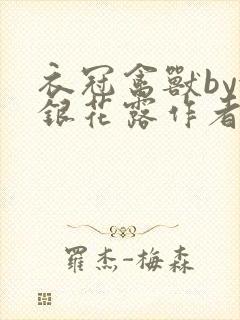 衣冠禽獸by
銀花露作者
羅杰-梅森